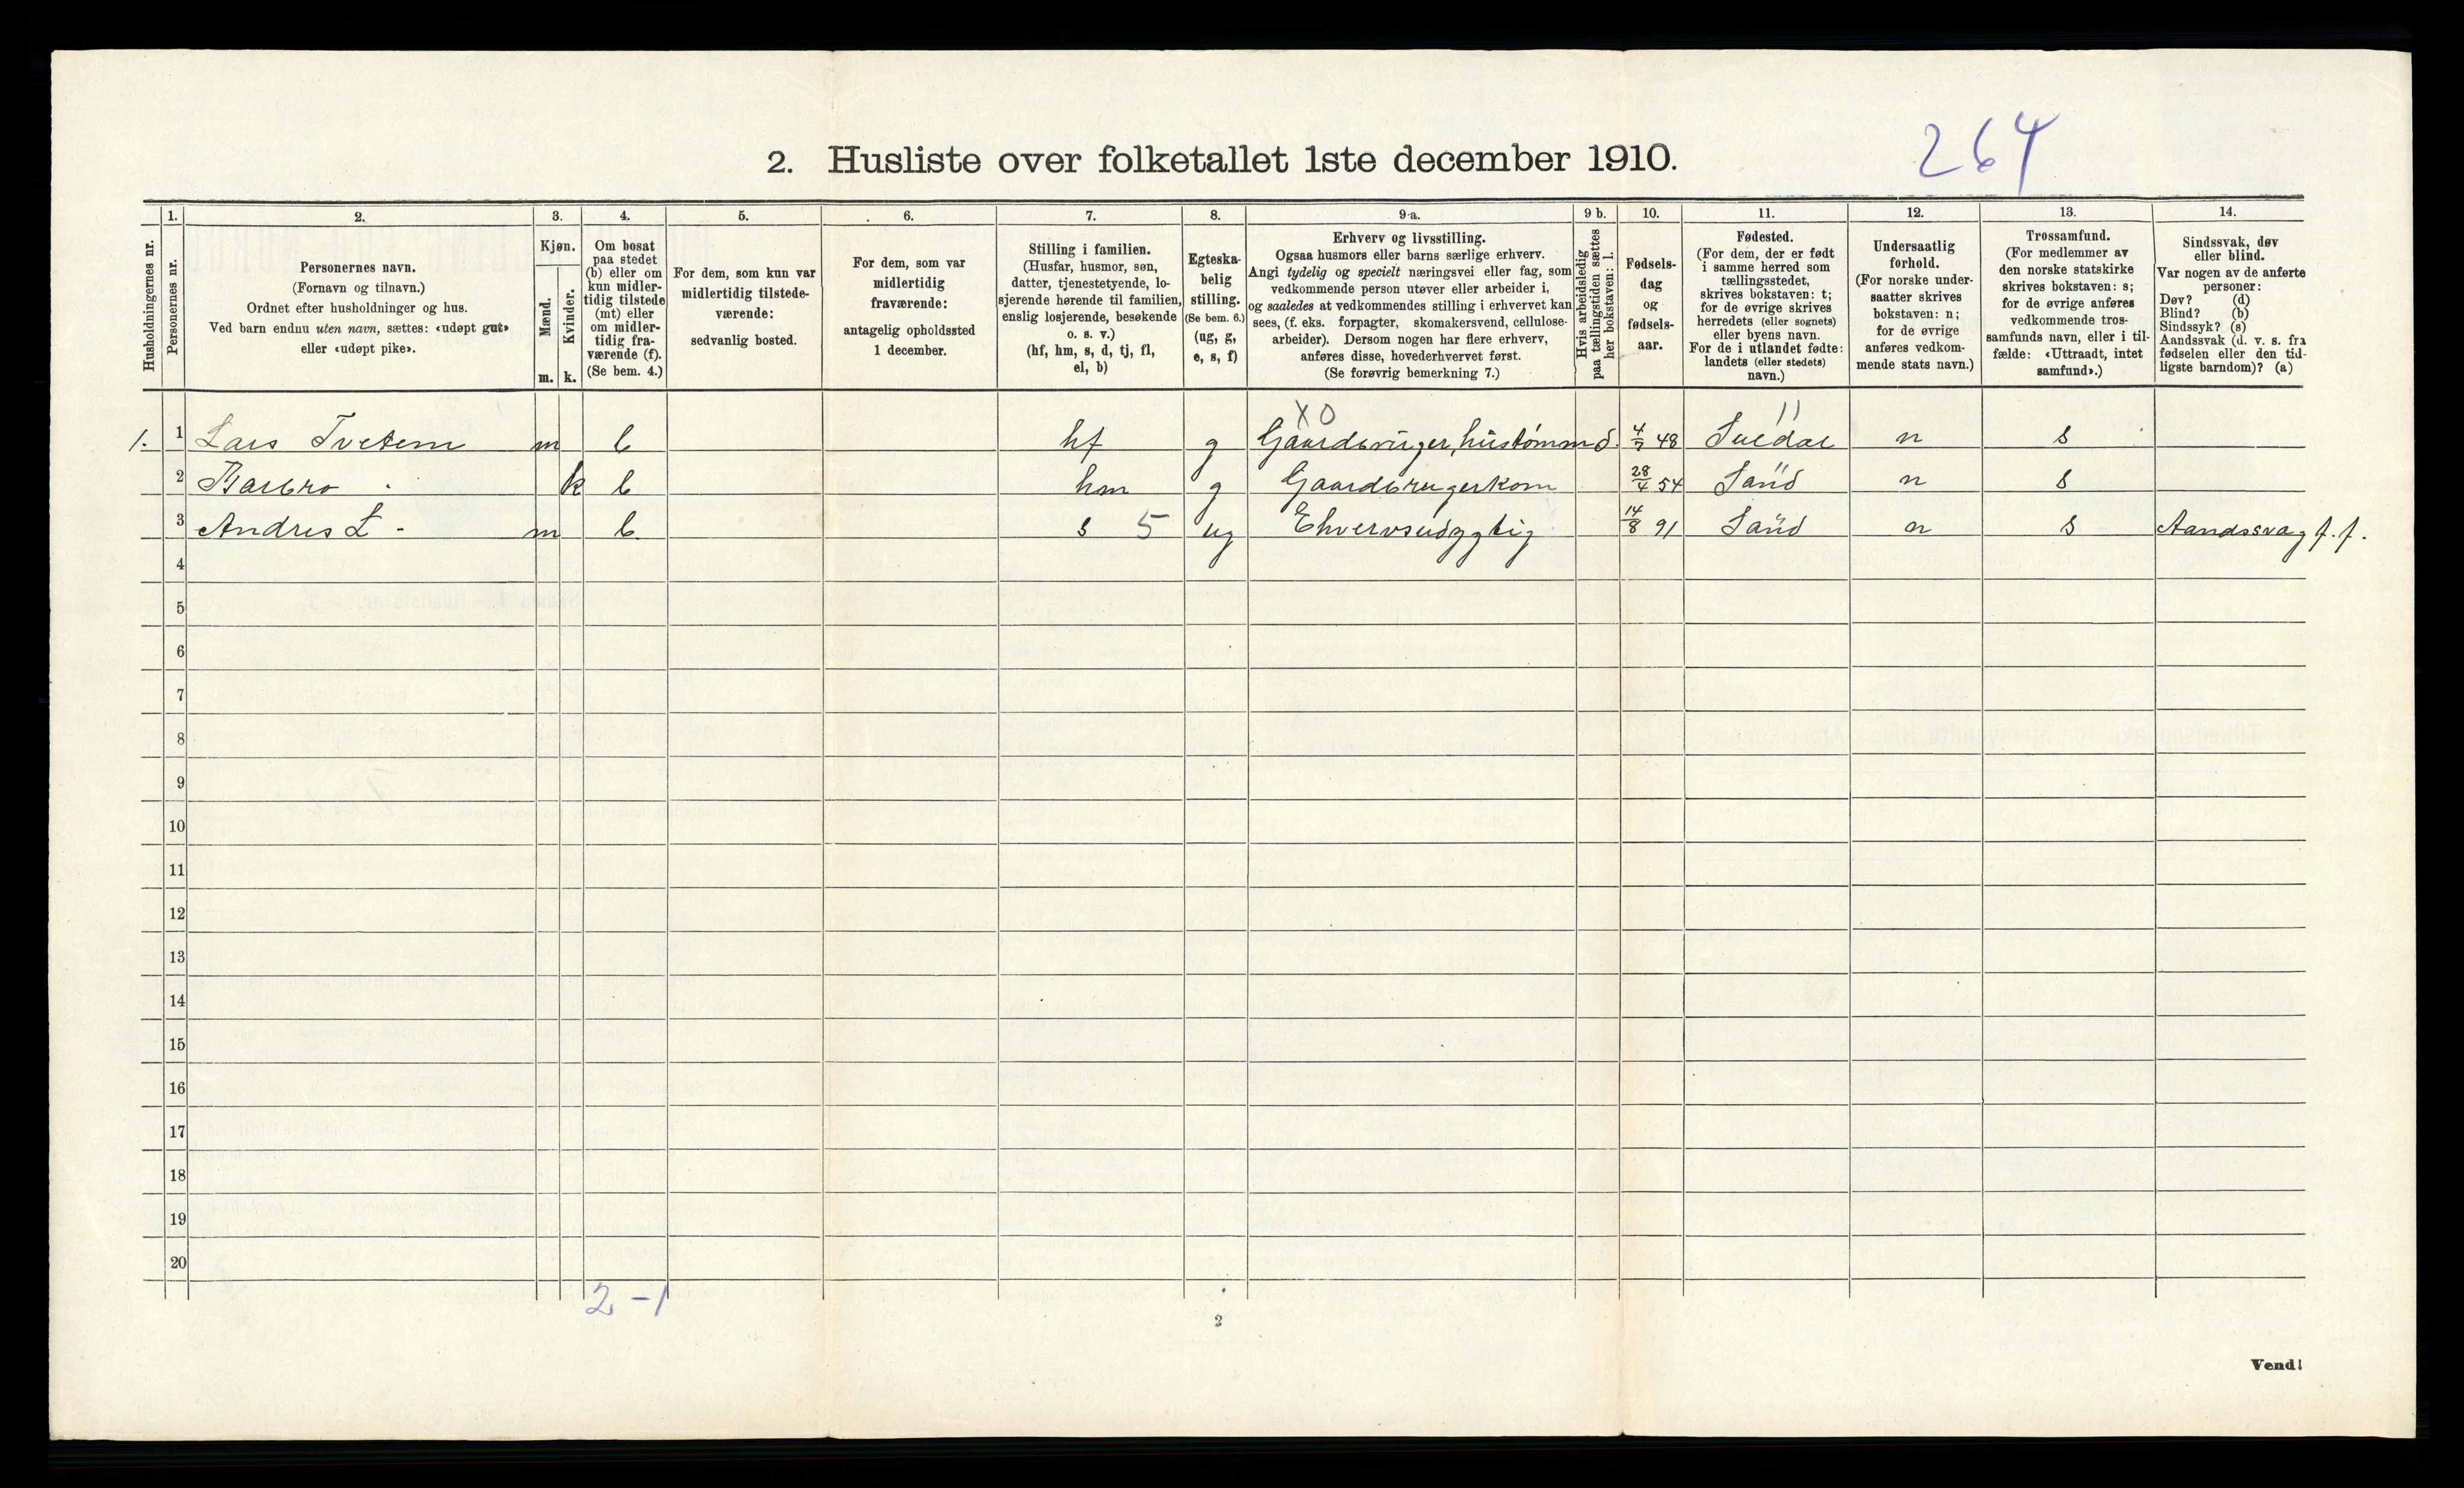 264
2. Husliste over folketallet 1ste december 1910.
Husholdningernes nr.
1.
Personernes nr.
2.
Personernes navn.
(Fornavn og tilnavn.)
Ordnet efter husholdninger og hus.
Ved barn endnu uten navn, sættes: «udøpt gut»
eller «udøpt pike».
3.
Kjøn.
Mænd.
m.
Kvinder.
k.
4.
Om bosat
paa stedet
(b) eller om
kun midler-
tidig tilstede
(mt) eller
om midler-
tidig fra-
værende (f).
(Se bem. 4.)
5.
For dem, som kun var
midlertidig tilstede-
værende:
sedvanlig bosted.
6.
For dem, som var
midlertidig
fraværende:
antagelig opholdssted
1 december.
7.
Stilling i familien.
(Husfar, husmor, søn,
datter, tjenestetyende, lo-
sjerende hørende til familien,
enslig losjerende, besøkende
o. s. v.)
(hf, hm, s, d, tj, fl,
el, b)
8.
Egteska-
belig
stilling.
(Se bem. 6.)
(ug, g,
e, s, f)
9 a.
Erhverv og livsstilling.
Ogsaa husmors eller barns særlige erhverv.
Angi tydelig og specielt næringsvei eller fag, som
vedkommende person utøver eller arbeider i,
og saaledes at vedkommendes stilling i erhvervet kan
sees, (f. eks. forpagter, skomakersvend, cellulose-
arbeider). Dersom nogen har flere erhverv,
anføres disse, hovederhvervet først.
(Se forøvrig bemerkning 7.)
9 b.
Hvis arbeidsledig
paa tællingstiden sættes
her bokstaven: l.
10.
Fødsels-
dag
og
fødsels-
aar.
11.
Fødested.
(For dem, der er født
i samme herred som
tællingsstedet,
skrives bokstaven: t;
for de øvrige skrives
herredets (eller sognets)
eller byens navn.
For de i utlandet fødte:
landets (eller stedets)
navn.)
12.
Undersaatlig
forhold.
(For norske under-
saatter skrives
bokstaven: n;
for de øvrige
anføres vedkom-
mende stats navn.)
13.
Trossamfund.
(For medlemmer av
den norske statskirke
skrives bokstaven: s;
for de øvrige anføres
vedkommende tros-
samfunds navn, eller i til-
fælde: «Uttraadt, intet
samfund».)
14.
Sindssvak, døv
eller blind.
Var nogen av de anførte
personer:
Døv? (d)
Blind? (b)
Sindssyk? (s)
Aandssvak (d. v. s. fra
fødselen eller den tid-
ligste barndom)? (a)
X0 11
1. 1 Lars Tvetem m b hf g 4/7 48 Suldal n s
2 Barbro " k b hm g Gaardbrugerkom 28/4 54 Sand n s
3 Andres L " m b s 5 ug Ehvervsudygtig 14/8 91 Sand n s Aandssvag f. f.
4
5
6
7
8
9
10
11
12
13
14
15
16
17
18
19
20
2-1
2
Vend!